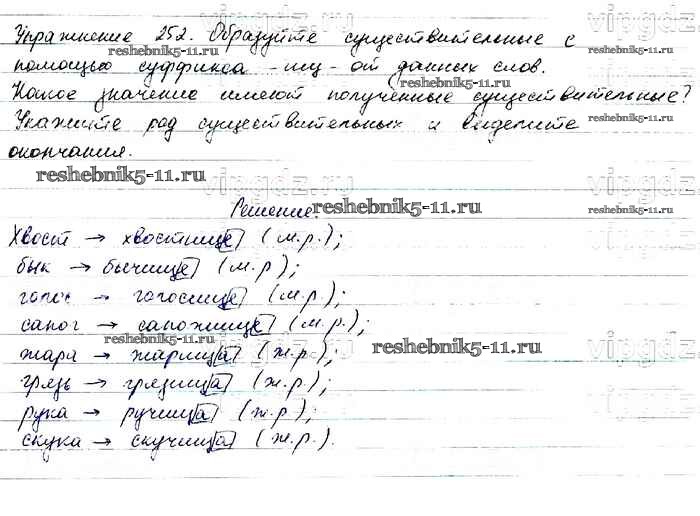 Упражнение 252. Образуйте существительные с
reshebnik5-11.ru
помощью суффикса -ищ- от данных слов.
reshebnik5-11.ru
Какое значение имеют полученные существительные?
Укажите род существительных и выделите
reshebnik5-11.ru
окончания.
reshebnik5-11.ru
vipgdz.ru
Решение.
reshebnik5-11.ru
reshebnik5-11.ru
Хвост → хвостище (м.р.);
бык → бычище (м.р.);
голос → голосище (м.р.);
сапог → сапожище (м.р.);
reshebnik5-11.ru
reshebnik5-11.ru
жара → жарища (ж.р.);
грязь → грязища (ж.р.);
рука → ручища (ж.р.);
reshebnik5-11.ru
скука → скучища (ж.р.).